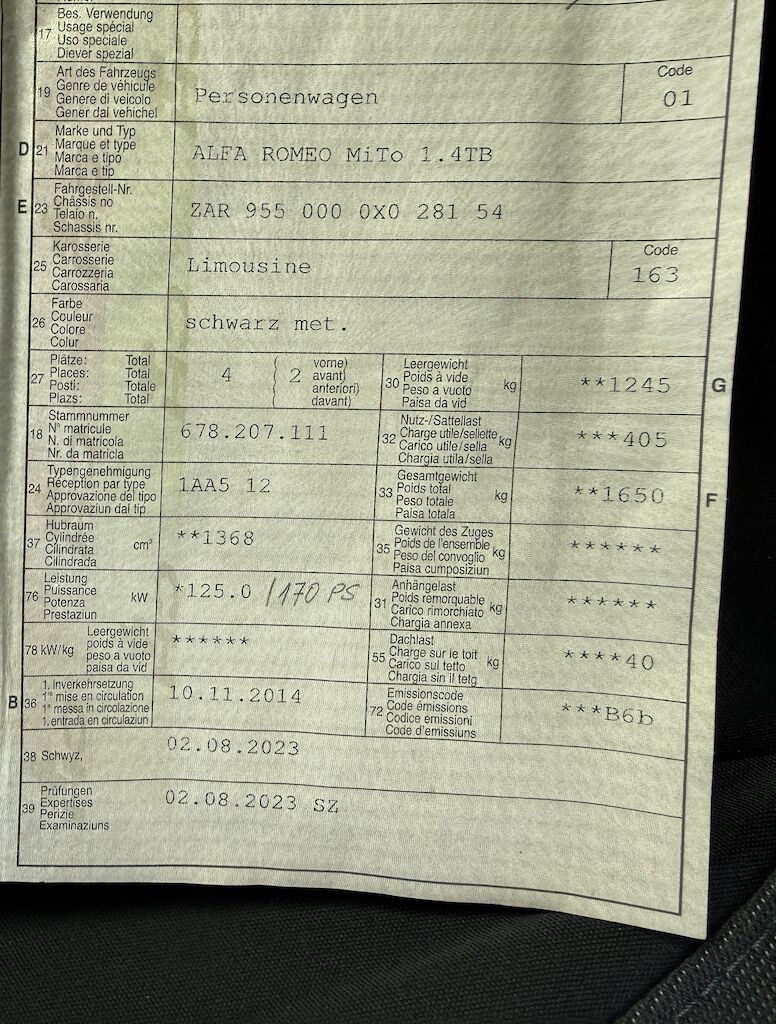 Bes. Verwendung
17 Usage spécial
Uso speciale
Diever spezial
Art des Fahrzeugs
19 Genre de véhicule
Genere di veicolo
Gener dal vehichel
Personenwagen
Code
01
Marke und Typ
D 21 Marque et type
Marca e tipo
Marca e tip
ALFA ROMEO MiTo 1.4TB
Fahrgestell-Nr.
E 23 Châssis no
Telaio n.
Schassis nr.
ZAR 955 000 0X0 281 54
Karosserie
25 Carrosserie
Carrozzeria
Carossaria
Limousine
Code
163
Farbe
26 Couleur
Colore
Colur
schwarz met.
Plätze: Total
27 Places: Total
Posti: Totale
Plazs: Total
4 ( 2 vorne)
avant)
anteriori)
davant)
Leergewicht
30 Poids à vide kg
Peso a vuoto
Paisa da vid
**1245 G
Stammnummer
18 N° matricule
N. di matricola
Nr. da matricla
678.207.111
Nutz-/Sattellast
32 Charge utile/sellette kg
Carico utile/sella
Chargia utila/sella
***405
Typengenehmigung
24 Réception par type
Approvazione del tipo
Approvaziun dal tip
1AA5 12
Gesamtgewicht
33 Poids total kg
Peso totale
Paisa totala
**1650 F
Hubraum
37 Cylindrée cm³
Cilindrata
Cilindrada
**1368
Gewicht des Zuges
35 Poids de l'ensemble kg
Peso del convoglio
Paisa cumposiziun
******
Leistung
76 Puissance kW
Potenza
Prestaziun
*125.0 /170 PS
Anhängelast
31 Poids remorquable kg
Carico rimorchiato
Chargia annexa
******
Leergewicht
78 kW/kg poids à vide
peso a vuoto
paisa da vid
******
Dachlast
55 Charge sur le toit kg
Carico sul tetto
Chargia sin il tetg
****40
1. Inverkehrsetzung
B 36 1re mise en circulation
1a messa in circolazione
1. entrada en circulaziun
10.11.2014
Emissionscode
72 Code émissions
Codice emissioni
Code d'emissiuns
***B6b
38 Schwyz, 02.08.2023
Prüfungen
39 Expertises
Perizie
Examinaziuns
02.08.2023 SZ